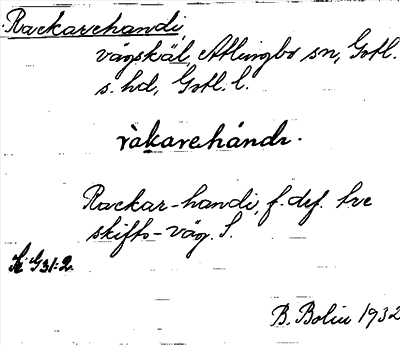 Rackarehandi,
vägskäl, Atlingbo sn, Gotl.
s. hd, Gotl. l.
ràkarehándı.
Rackar-handi, f. def. tre
skifts-väg. S.
K G 31:2.
B. Bolin 1932